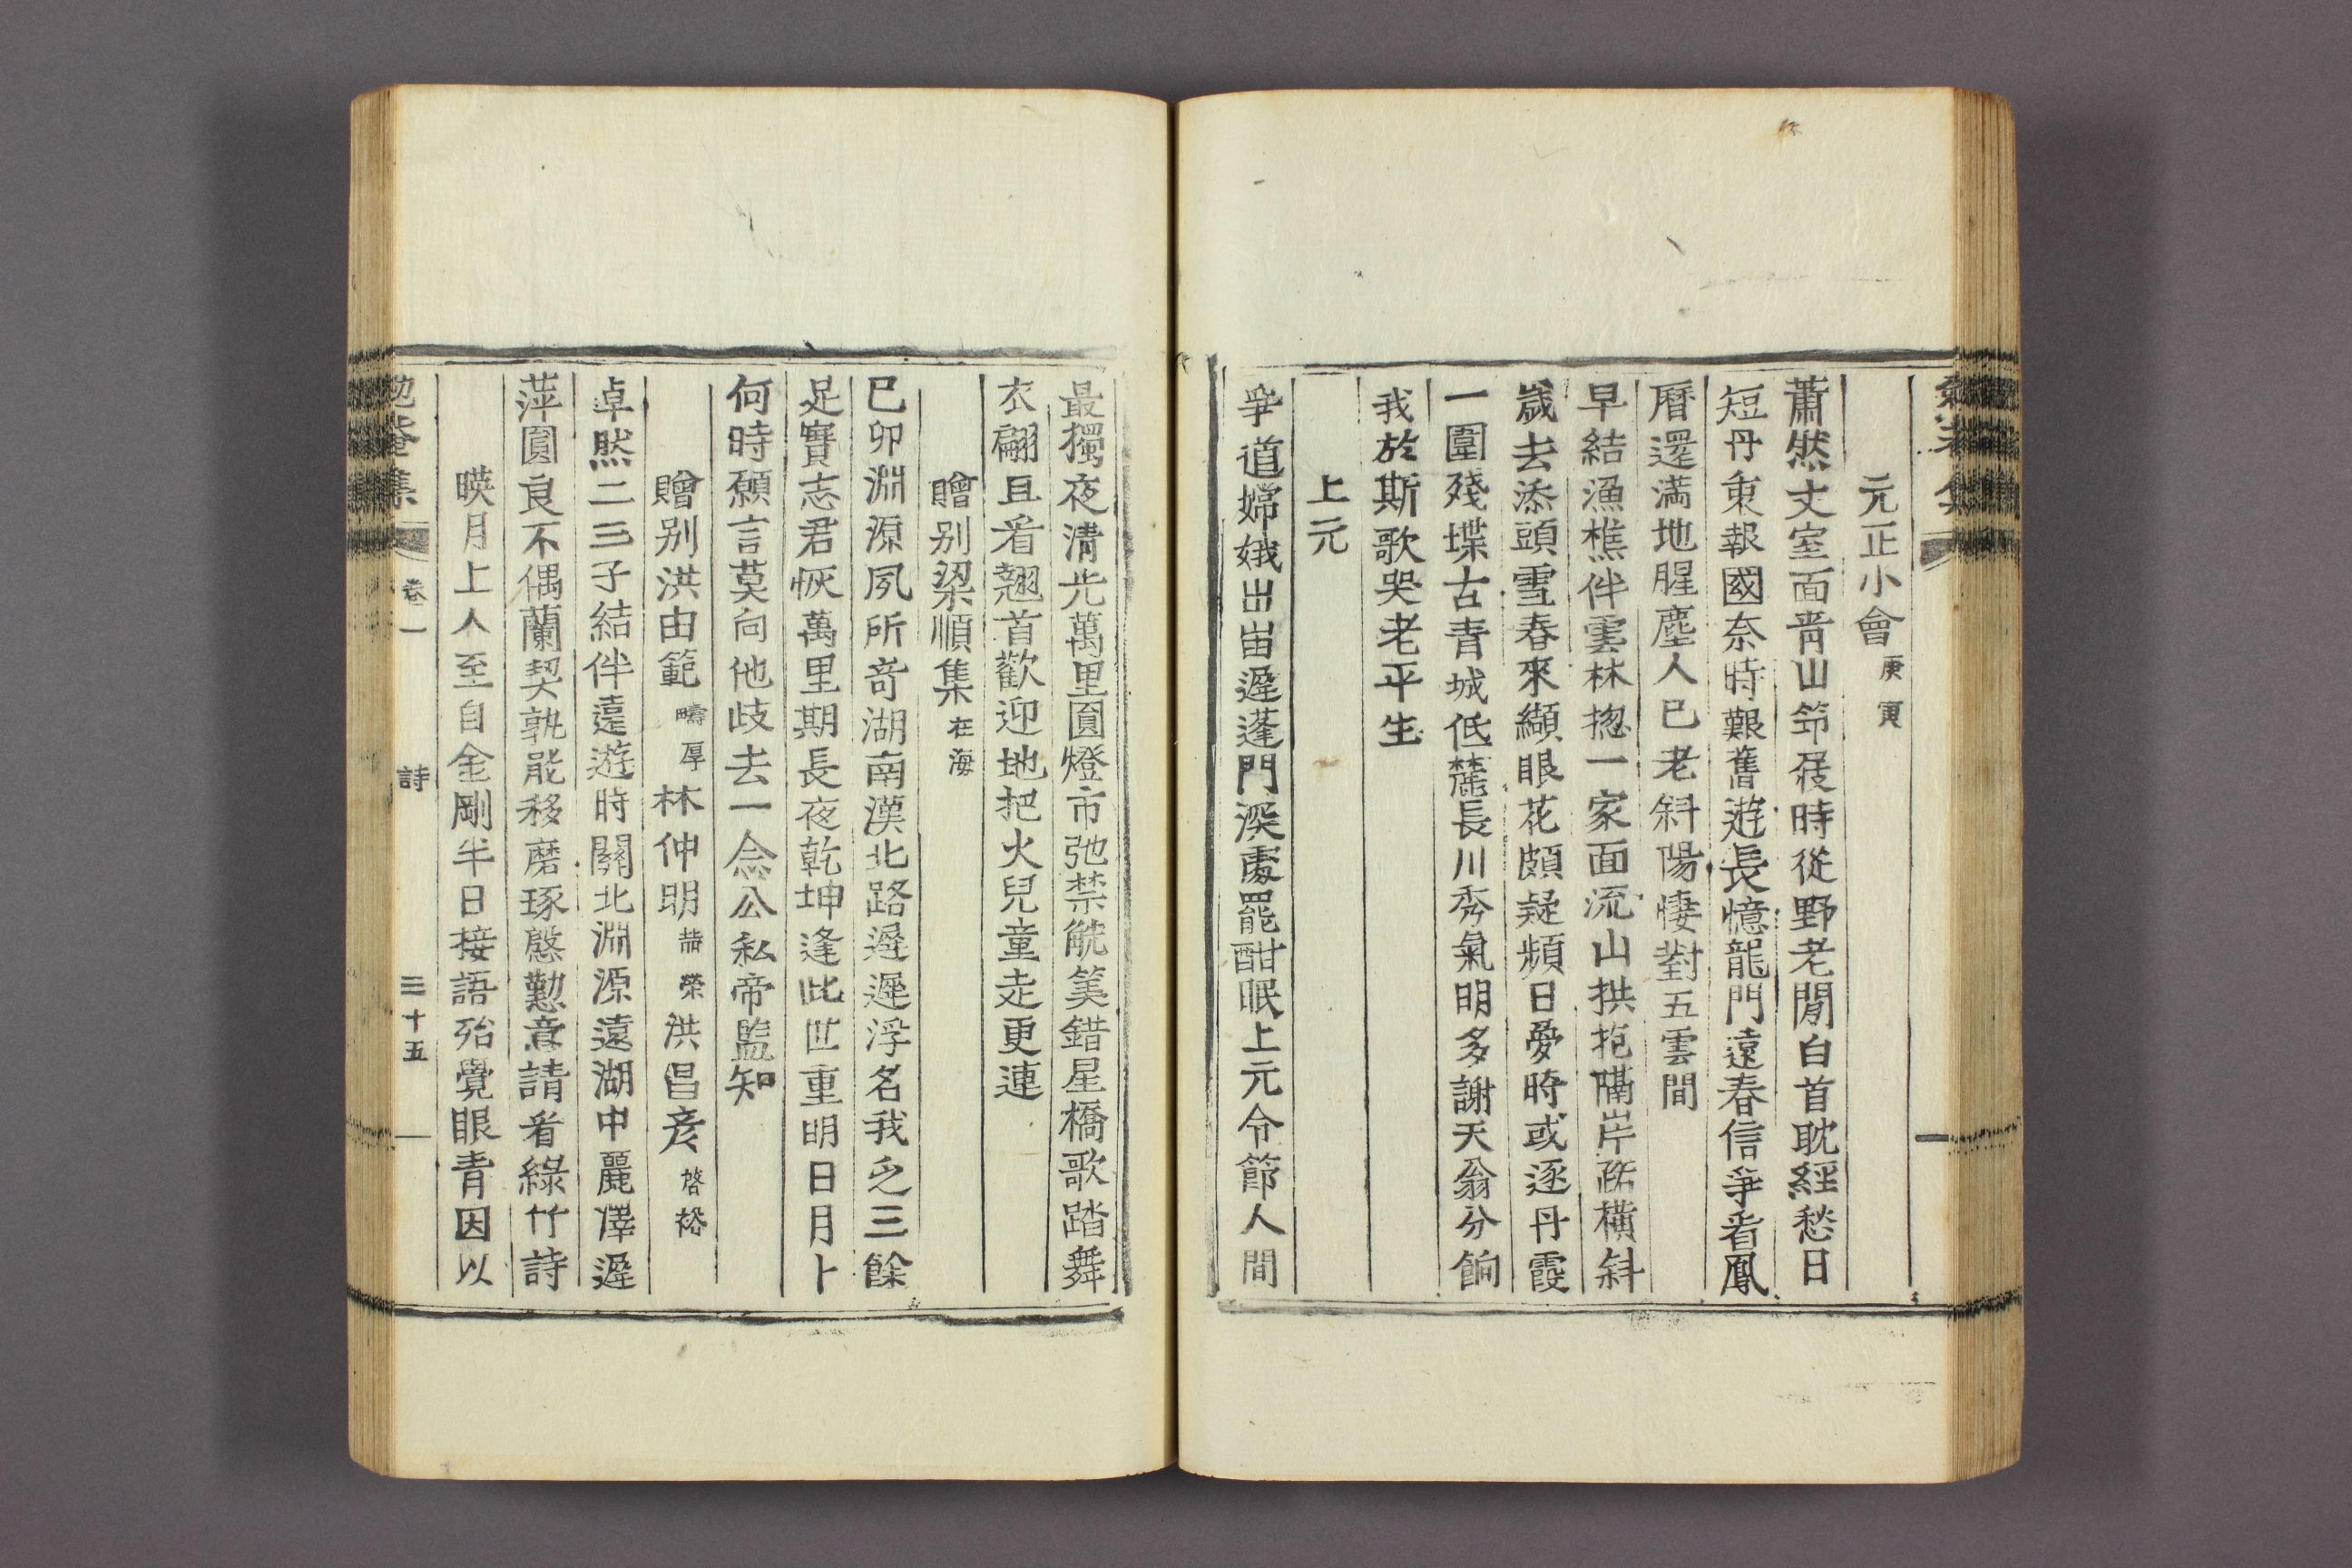 元正小會 庚寅
蕭然丈室面靑山笻屐時從野老閒白首耽經愁日
短丹衷報國奈時艱舊遊長憶龍門遠春信爭看鳳
曆還滿地腥塵人已老斜陽悽對五雲間
早結漁樵伴雲林摠一家面流山拱抱隔岸疏橫斜
歲去添頭雪春來纈眼花頗疑頻日愛時或逐丹霞
一圍殘堞古靑城低麓長川秀氣明多謝天翁分餉
我於斯歌哭老平生
上元
爭道嫦娥出峀遲蓬門深處罷酣眠上元令節人間
最獨夜淸光萬里圓燈市弛禁觥籌錯星橋歌踏舞
衣翩且看翹首歡迎地把火兒童走更連
贈別梁順集 在海
已卯淵源夙所奇湖南漢北路遲遲浮名我乏三餘
足實志君恢萬里期長夜乾坤逢此世重明日月卜
何時願言莫向他歧去一念公私帝監知
贈別洪由範 疇厚 林仲明 喆榮 洪昌彦 啓裕
卓然二三子結伴遠遊時關北淵源遠湖中麗澤遲
萍圓良不偶蘭契孰能移磨琢慇懃意請看綠竹詩
暎月上人至自金剛半日接語殆覺眼靑因以
庵集 卷一 詩 三十五